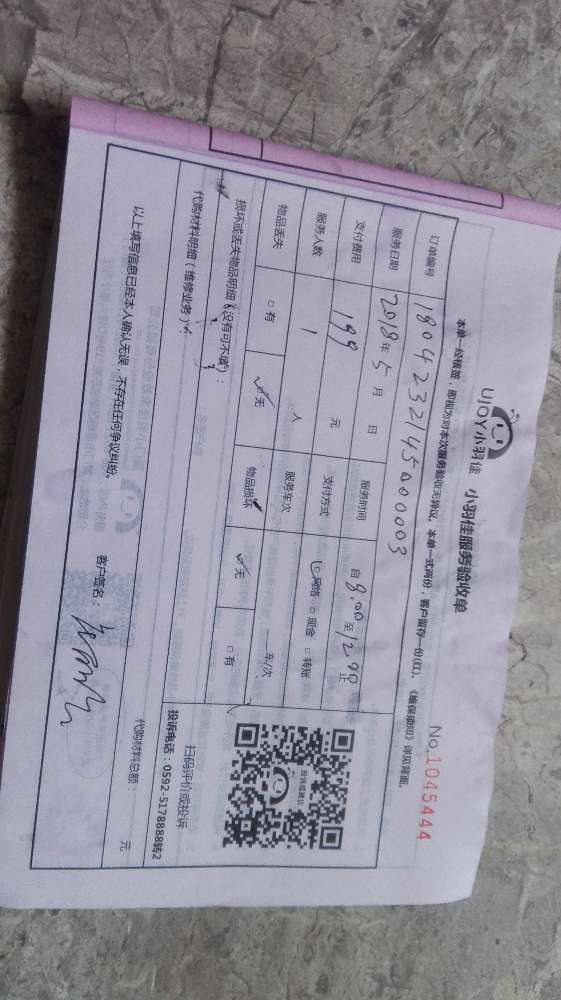 UJOY小羽佳 小羽佳服务验收单
No.1045444
本单一经核签，即视为对本次服务验收无异议。本单一式两份，客户留存一份(红)。《维保须知》详见背面。
订单编号 180423214500003
服务日期 2018年5月 日 服务时间 自8:00至12:00止
支付费用 199 元 支付方式 网络 □现金 □转账
服务人数 1 人 服务车次 车/次
物品丢失 □有 ☑无 物品损坏 ☑无 □有
损坏或丢失物品明细（没有可不填）：
代购材料明细（维修业务）：
代购材料总额： 元
投诉或建议
扫码评价或投诉
投诉电话：0592-5178888转2
以上填写信息已经本人确认无误，不存在任何争议纠纷。 客户签名：